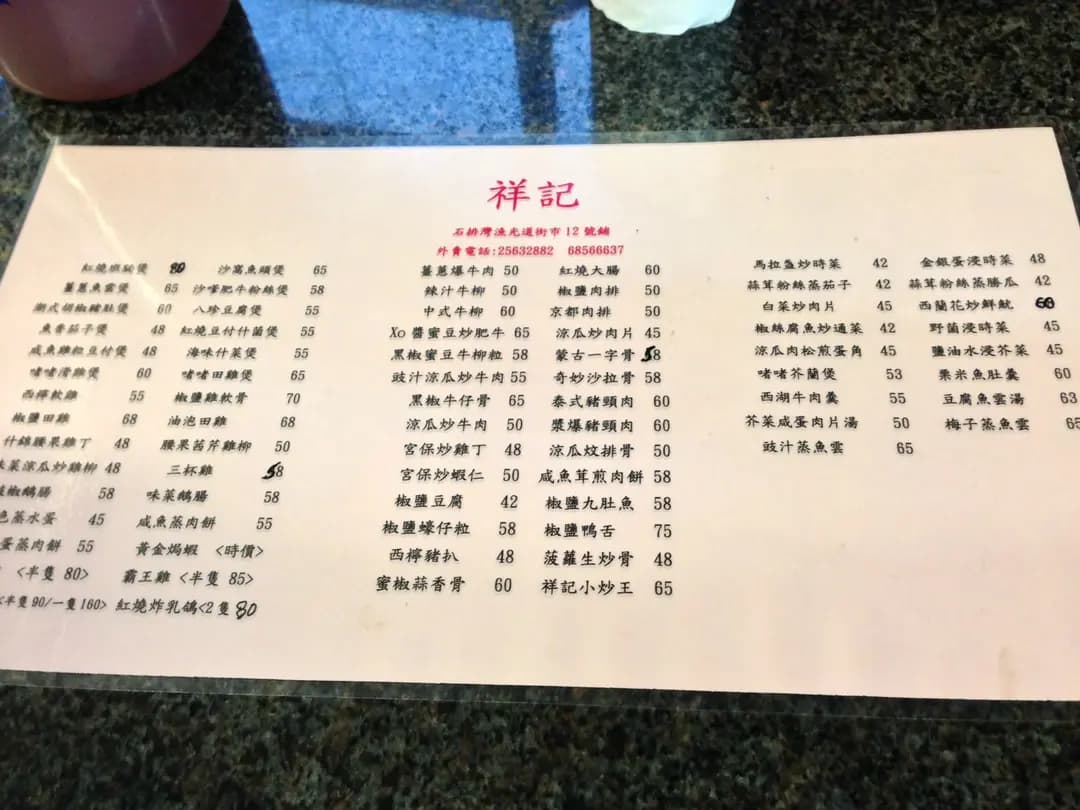 祥記
石排灣漁光道街市12號鋪
外賣電話:25632882 68566637
紅燒斑腩煲 80 沙窩魚頭煲 65
薑蔥魚雲煲 65 沙嗲肥牛粉絲煲 58
潮式胡椒豬肚煲 60 八珍豆腐煲 55
魚香茄子煲 48 紅燒豆付什菌煲 55
咸魚雞粒豆付煲 48 海味什菜煲 55
啫啫滑雞煲 60 啫啫田雞煲 65
西檸軟雞 55 椒鹽雞軟骨 70
椒鹽田雞 68 油泡田雞 68
什錦腰果雞丁 48 腰果茜芹雞柳 50
味菜涼瓜炒雞柳 48 三杯雞 58
椒鵝腸 58 味菜鵝腸 58
色蒸水蛋 45 咸魚蒸肉餅 55
蛋蒸肉餅 55 黃金焗蝦 <時價>
<半隻 80> 霸王雞 <半隻 85>
<半隻90/一隻160> 紅燒炸乳鴿<2隻80
薑蔥爆牛肉 50 紅燒大腸 60
辣汁牛柳 50 椒鹽肉排 50
中式牛柳 60 京都肉排 50
Xo醬蜜豆炒肥牛 65 涼瓜炒肉片 45
黑椒蜜豆牛柳粒 58 蒙古一字骨 58
豉汁涼瓜炒牛肉 55 奇妙沙拉骨 58
黑椒牛仔骨 65 泰式豬頸肉 60
涼瓜炒牛肉 50 醬爆豬頸肉 60
宮保炒雞丁 48 涼瓜炆排骨 50
宮保炒蝦仁 50 咸魚茸煎肉餅 58
椒鹽豆腐 42 椒鹽九肚魚 58
椒鹽蠔仔粒 58 椒鹽鴨舌 75
西檸豬扒 48 菠蘿生炒骨 48
蜜椒蒜香骨 60 祥記小炒王 65
馬拉盞炒時菜 42 金銀蛋浸時菜 48
蒜茸粉絲蒸茄子 42 蒜茸粉絲蒸勝瓜 42
白菜炒肉片 45 西蘭花炒鮮魷 60
椒絲腐魚炒通菜 42 野菌浸時菜 45
涼瓜肉松煎蛋角 45 鹽油水浸芥菜 45
啫啫芥蘭煲 53 粟米魚肚羹 60
西湖牛肉羹 55 豆腐魚雲湯 63
芥菜咸蛋肉片湯 50 梅子蒸魚雲 65
豉汁蒸魚雲 65